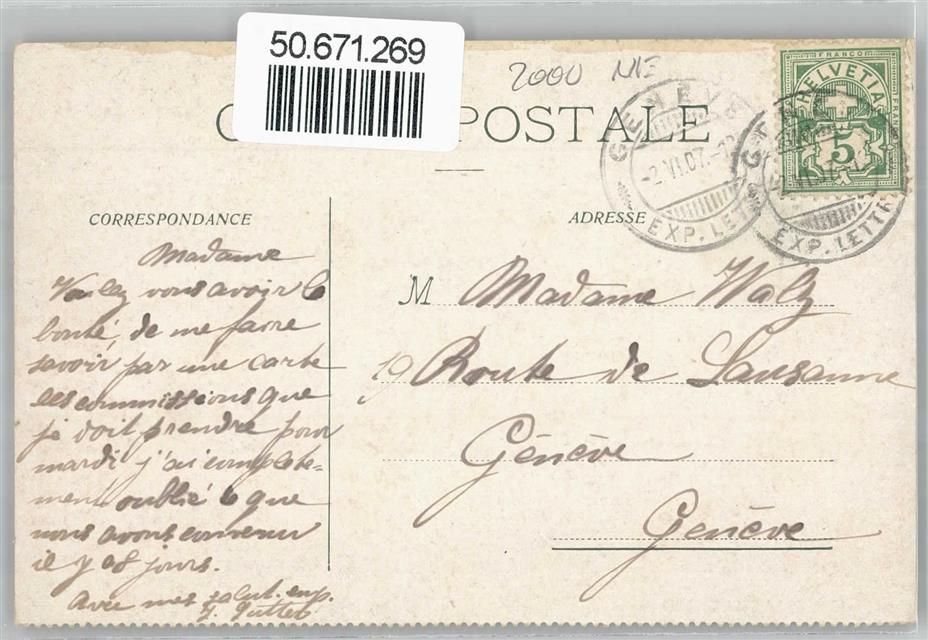 50.671.269
2000
C POSTALE
FRANCO
HELVETIA
5
GENEVE
-2.VI.07.-12
EXP. LETT
EXP. LETTR
CORRESPONDANCE
ADRESSE
Madame
Voulez vous avoir la
bonté, de me faire
savoir par une carte
les commissions que
je doit prendre pour
mardi j'ai complete-
ment oublié ce que
nous avons convenu
il y a 8 jours.
Avec mes salut. emp.
M Madame Walz
19 Route de Lausanne
Génève
Genève